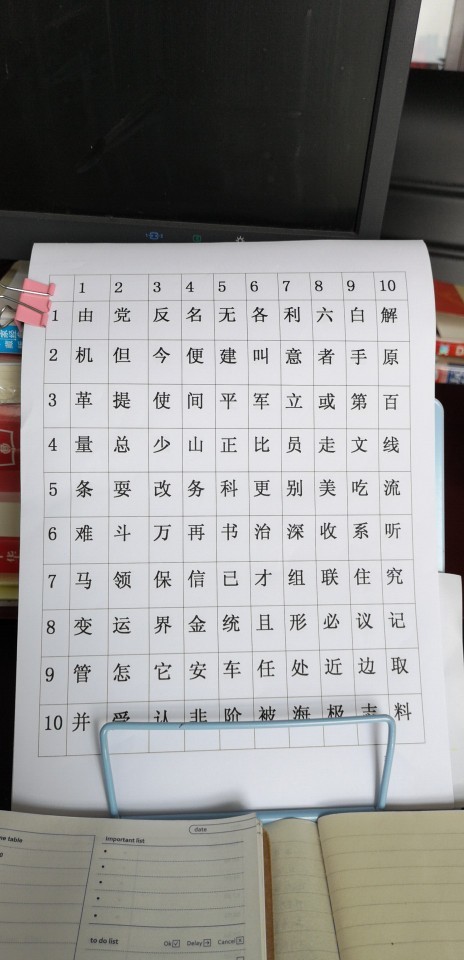 1 2 3 4 5 6 7 8 9 10
1 由 党 反 名 无 各 利 六 白 解
2 机 但 今 便 建 叫 意 者 手 原
3 革 提 使 间 平 军 立 或 第 百
4 量 总 少 山 正 比 员 走 文 线
5 条 耍 改 务 科 更 别 美 吃 流
6 难 斗 万 再 书 治 深 收 系 听
7 马 领 保 信 已 才 组 联 住 究
8 变 运 界 金 统 且 形 必 议 记
9 管 怎 它 安 车 任 处 近 边 取
10 并 受 认 非 阶 被 海 极 志 料
date
me table
important list
to do list
Ok Delay Cancel